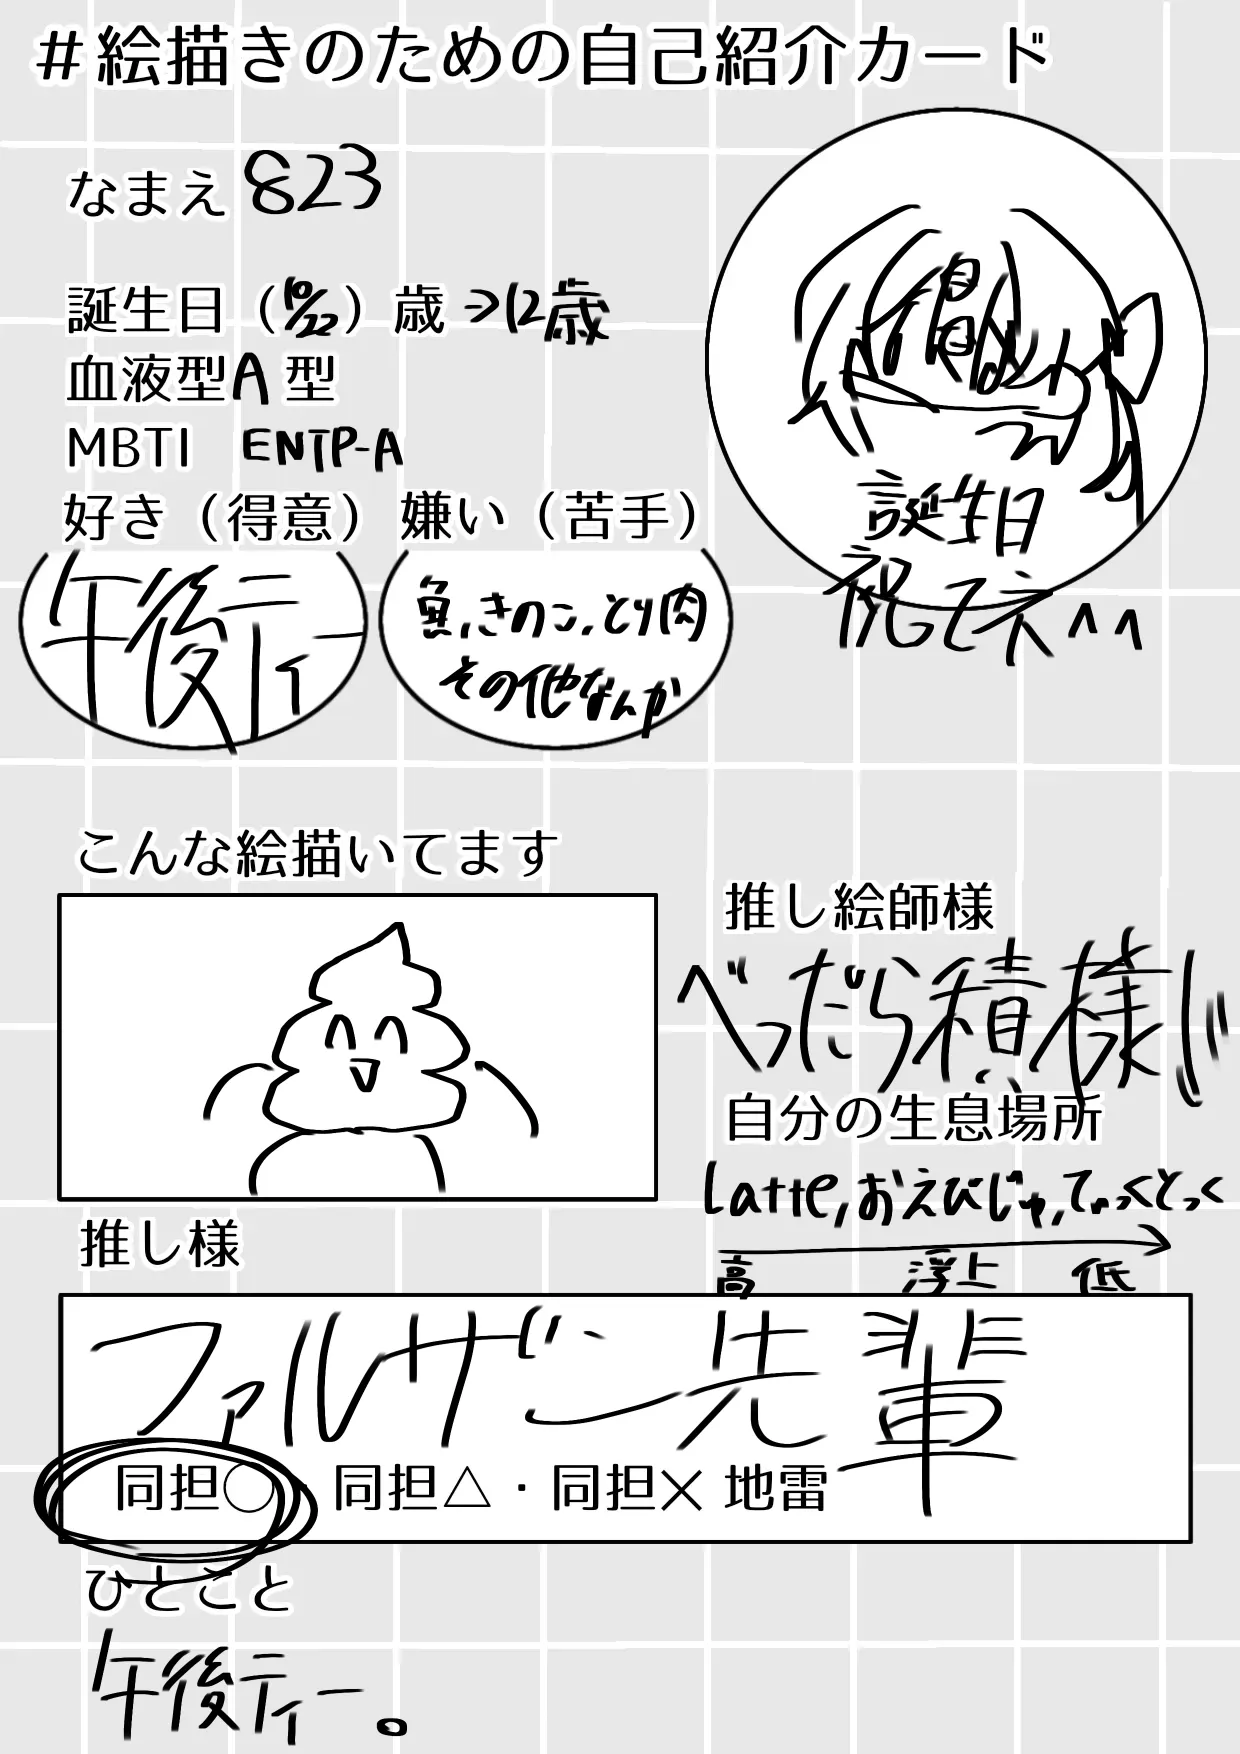 #絵描きのための自己紹介カード
なまえ 823
誕生日（10/22）歳→12歳
血液型A型
MBTI ENTP-A
好き（得意） 嫌い（苦手）
午後ティー
魚,きのこ,とり肉
その他なんか
誕生日
祝ってネ^^
こんな絵描いてます
推し絵師様
べったら積様!!!
自分の生息場所
Latte,おえびじゅ,てぃっくとっく
高 浮上 低
推し様
ファルザン先輩
同担○・同担△・同担× 地雷
ひとこと
午後ティー。